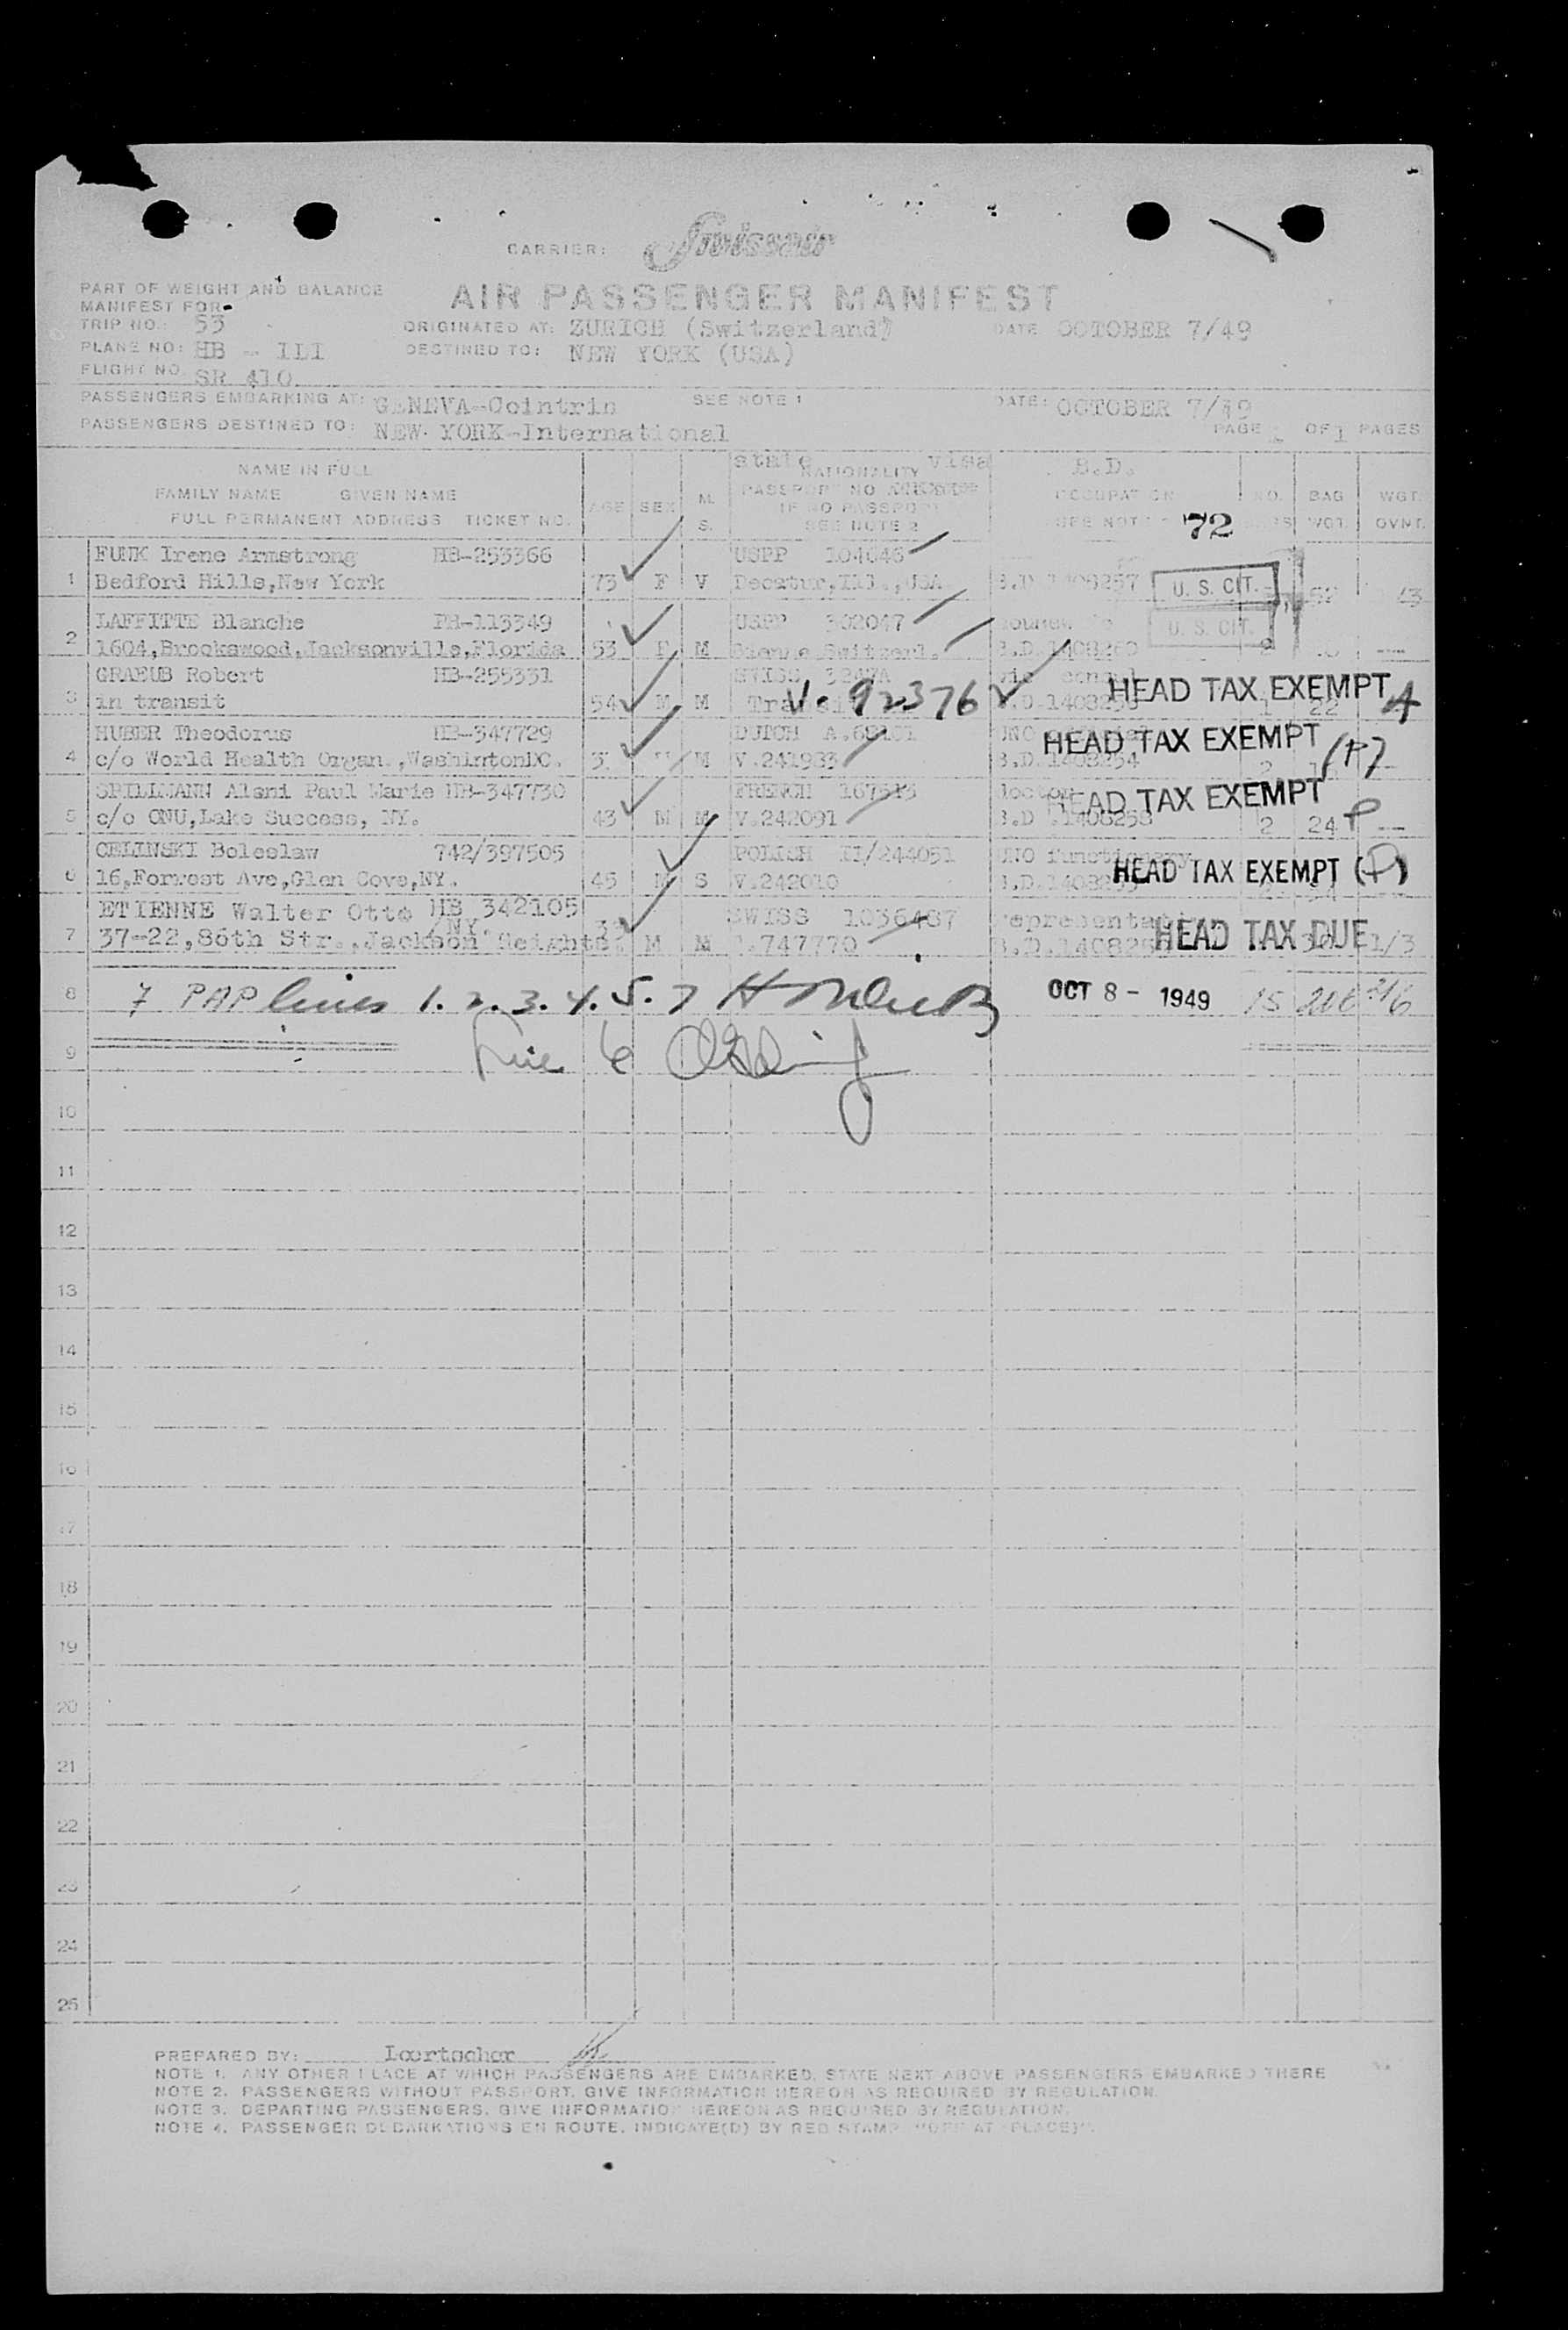 CARRIER: Swissair
PART OF WEIGHT AND BALANCE
MANIFEST FOR
AIR PASSENGER MANIFEST
TRIP NO.: 53
ORIGINATED AT: ZURICH (Switzerland) DATE OCTOBER 7/49
PLANE NO: HB - ILI
DESTINED TO: NEW YORK (USA)
FLIGHT NO. SR 410
PASSENGERS EMBARKING AT: GENEVA-Cointrin SEE NOTE 1 DATE: OCTOBER 7/49
PASSENGERS DESTINED TO: NEW YORK-International PAGE 1 OF 1 PAGES
NAME IN FULL state NATIONALITY visa B.D.
FAMILY NAME GIVEN NAME AGE SEX M. S. PASSPORT NO OCCUPATION NO. BAG WGT.
IF NO PASSPORT
FULL PERMANENT ADDRESS TICKET NO. SEE NOTE 2 SEE NOTE 72 WGT. OVWT.
FUNK Irene Armstrong HB-253366 USPP 104646
1 Bedford Hills, New York 73 F V Decatur, Ill., USA B.D. 1408257 U. S. CIT.
LAFFITTE Blanche PH-113349 USPP 302047
2 1604, Brookswood, Jacksonville, Florida 53 F M Switzerl. B.D. 1408260 U. S. CIT. 2
GRAEUB Robert HB-255351 SWISS 3247A consul
3 in transit 54 M M Transit V. 92376 HEAD TAX EXEMPT 1 22 A
HUBER Theodorus HB-347729 DUTCH UNO
4 c/o World Health Organ., WashintonDC. M V.241983 B.D. 1408254 HEAD TAX EXEMPT 2
SPILLMANN Alani Paul Marie HB-347730 FRENCH 167513 doctor
5 c/o ONU, Lake Success, NY. 43 M M V.242091 B.D. 1408258 HEAD TAX EXEMPT 2 24 --
CELINSKI Boleslaw 742/397505 POLISH II/244051 UNO functionary
6 16, Forrest Ave, Glen Cove, NY. 45 M S V.242010 HEAD TAX EXEMPT
ETIENNE Walter Otto HB 342105 SWISS 1036487 representative
7 37-22, 86th Str., Jackson Heights /NY. M M V.747770 HEAD TAX DUE 1/3
8 7 PAP lines 1. 2. 3. 4. 5. 7 OCT 8 - 1949 15
9 Line 6
10
11
12
13
14
15
16
17
18
19
20
21
22
23
24
25
PREPARED BY: Loertscher
NOTE 1. ANY OTHER PLACE AT WHICH PASSENGERS ARE EMBARKED, STATE NEXT ABOVE PASSENGERS EMBARKED THERE
NOTE 2. PASSENGERS WITHOUT PASSPORT, GIVE INFORMATION HEREON AS REQUIRED BY REGULATION.
NOTE 3. DEPARTING PASSENGERS, GIVE INFORMATION HEREON AS REQUIRED BY REGULATION.
NOTE 4. PASSENGER DEBARKATIONS EN ROUTE, INDICATE(D) BY RED STAMP "OFF AT (PLACE)".